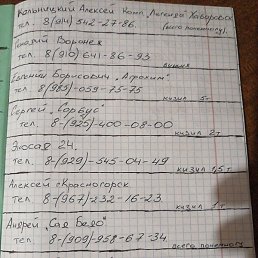 Кальницкий Алексей Комп. "Легенда" Хабаровск
тел. 8(914) 542-27-86. (всего понемногу).
Геннадий Воронеж
тел. 8(910) 641-86-93 вишня
Евгений Борисович "Агрохим"
тел. 8(985)-059-75-75 кизил 5т
Сергей "Сорбус"
тел. 8-(925)-400-08-00 кизил 2т
Эюсая 24.
тел. 8(929)-545-04-49 кизил 1,5т
Алексей г.Красногорск
тел. 8-(967)-232-16-23 кизил 1т
Андрей "Сад Бело"
тел 8-(909)-958-67-34 всего понемногу